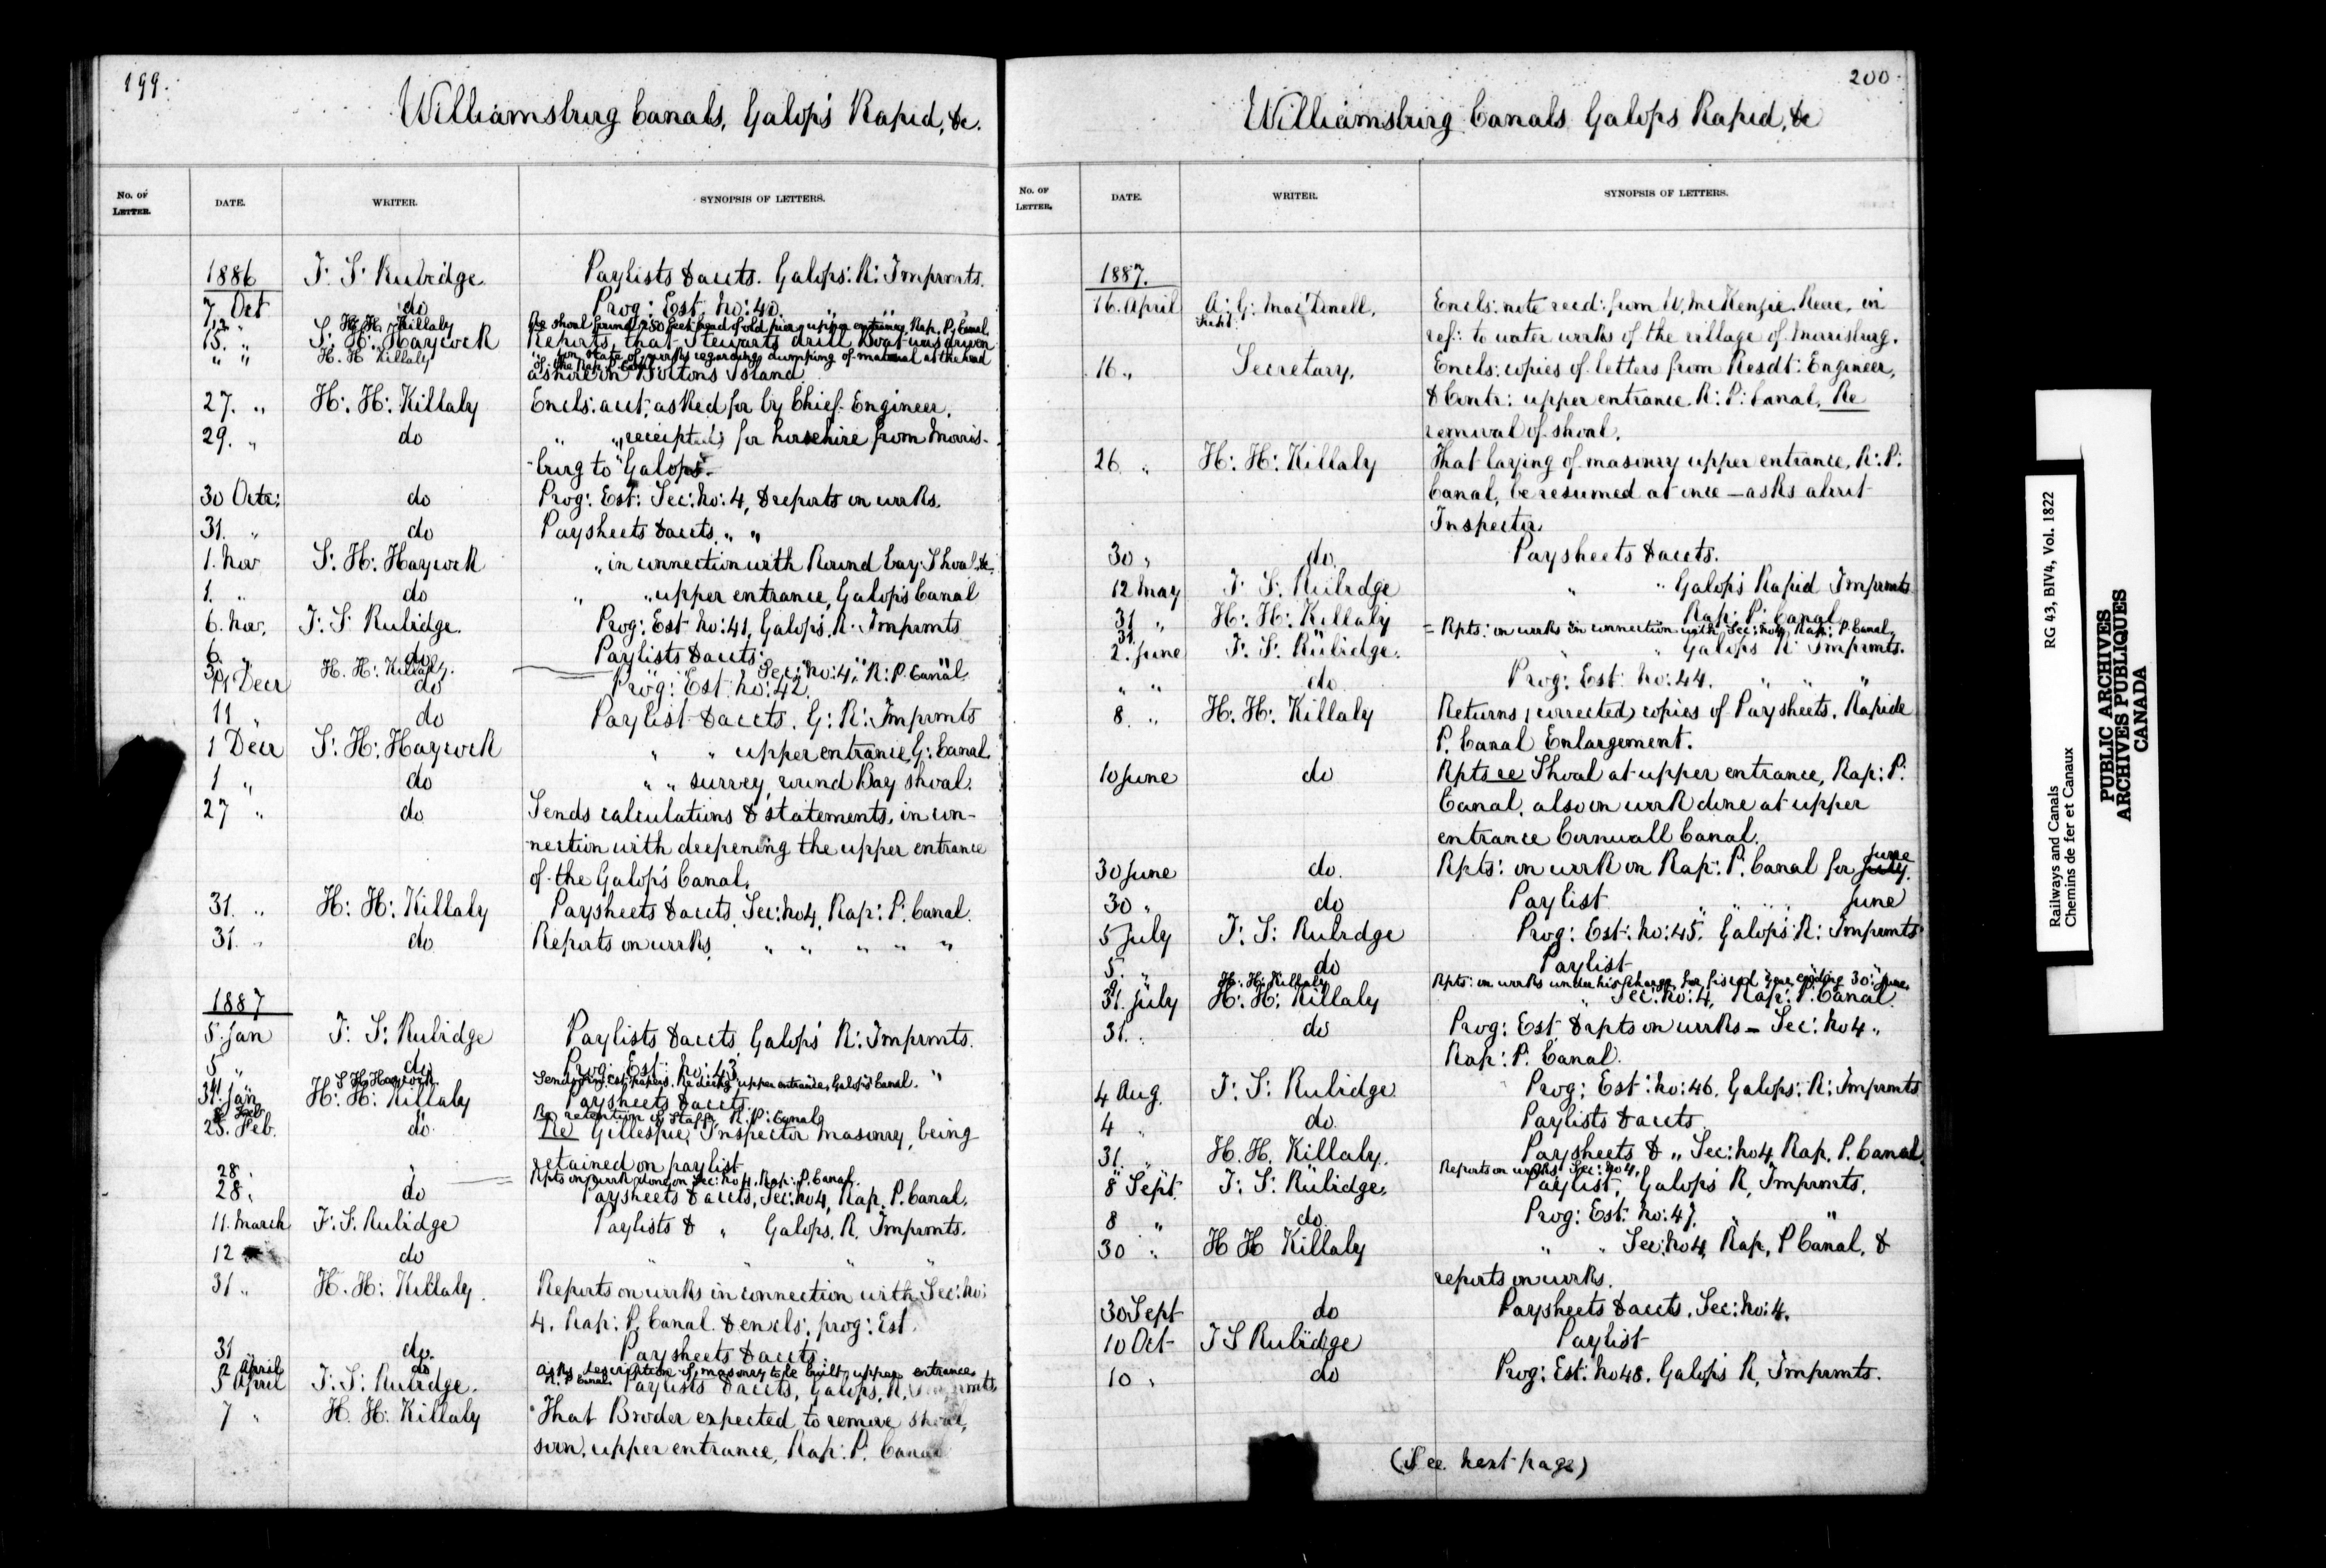 199.
Williamsburg Canals, Galops Rapid, &c.
No. of Letter. DATE. WRITER. SYNOPSIS OF LETTERS.
1886 T. S. Rubidge Paylists & accts. Galops: R: Imprmts.
7 Oct do Prog: Est. No: 40 " " "
12 " H. H. Killaly Re shoal found 250 feet head of old pier upper entrance, Rap. P. Canal.
15. " S. H. Haycock Reports, that Stewarts drill boat was driven
" " H. H. Killaly " on state of works regarding dumping of material at the head
of the Rap. P. Canal
ashore on Boltons Island
27. " H: H: Killaly Encls: acct. asked for by Chief Engineer.
29. " do " " receipted, for horsehire from Morris-
-burg to Galops.
30 Octr: do Prog: Est: Sec: No: 4, & reports on works.
31. " do Paysheets & accts. " "
1. Nov S: H: Haycock " in connection with Round bay Shoal &c.
1. " do " " upper entrance, Galops Canal
6. Nov. T: S: Rubidge. Prog: Est No: 41, Galops. R. Imprmts
6 " do Paylists & accts: " " "
30 " H. H: Killaly. Sec: No: 4, R: P. Canal.
11 Decr do Prog: Est: No: 42.
11 " do Paylist & accts. G: R: Imprmts
1 Decr S: H: Haycock " " upper entrance, G: Canal.
1 " do " " survey, round Bay shoal.
27 " do Sends calculations & statements, in con-
nection with deepening the upper entrance
of the Galops Canal.
31. " H: H: Killaly Paysheets & accts. Sec: No 4, Rap: P. Canal.
31. " do Reports on works, " " " " "
1887
5. Jan T: S: Rubidge Paylists & accts. Galops R: Imprmts.
5 " do Prog: Est: No: 43 "
S H Haycock Sends papers, Re upper entrance, Galops Canal.
31. Jan H: H: Killaly Paysheets & accts.
Feb " Re retention of staff, R: P: Canal
25. Feb. do Re Gillespie, Inspector masonry, being
retained on paylist
28. " Rpts on work done on Sec: No 4, Rap: P. Canal.
28. do Paysheets & accts, Sec: No 4, Rap. P. Canal.
11. March T. S. Rubidge Paylists & " Galops. R. Imprmts.
12 do " " " "
31 " H. H: Killaly. Reports on works in connection with Sec: No:
4. Rap: P. Canal. & encls: prog: Est.
31 " do. Paysheets & accts.
2 April do Asks description of masonry to be built, upper entrance
R. P. Canal.
5 April T: S: Rubidge. Paylists & accts, Galops, R. Imprmts
7 " H. H: Killaly That Broder expected to remove shoal,
soon, upper entrance, Rap: P. Canal
200
Williamsburg Canals Galops Rapid, &c
No. of Letter. DATE. WRITER. SYNOPSIS OF LETTERS.
1887.
16. April A: G: MacDonell, Encls: note recd: from W, McKenzie. Reeve, in
Supt.
ref: to water works of the village of Morrisburg.
16 " Secretary. Encls: copies of letters from Resdt: Engineer,
& Contr: upper entrance. R: P: Canal, Re
removal of shoal.
26 " H: H: Killaly That laying of masonry upper entrance, R: P:
Canal, be resumed at once — asks about
Inspector.
30 " do. Paysheets & accts.
12 May T. S. Rubidge " " Galops Rapid Imprmts
31 " H: H: Killaly Rap: P: Canal
31 = Rpts: on works in connection with Sec: No 4 Rap: P. Canal.
2. June T: S. Rubidge. " " Galops R Imprmts.
" " do Prog: Est: No: 44. " " "
8. " H: H: Killaly Returns, corrected, copies of Paysheets. Rapide
P. Canal Enlargement.
10 June do Rpts re Shoal at upper entrance, Rap: P.
Canal, also on work done at upper
entrance Cornwall Canal.
30 June do. Rpts: on work on Rap: P. Canal for July. June
30 " do Paylist " " " " June
5 July T: S: Rubidge Prog: Est: No: 45. Galops R: Imprmts
5. " do Paylist " " "
9 H: H: Killaly Rpts: on works under his charge, for fiscal year ending 30: June.
31. July H: H: Killaly " Sec: No: 4, Rap: P. Canal.
31. " do Prog: Est. & rpts on works — Sec: No 4 "
Rap: P. Canal.
4 Aug. T: S: Rubidge Prog: Est: No: 46. Galops: R: Imprmts
4 " do. Paylists & accts
31. " H. H. Killaly. Paysheets & " Sec: No 4 Rap. P. Canal.
" Reports on works, Sec: No 4.
8 Sept. T: S: Rubidge. Paylist, Galops R, Imprmts.
8 " do. Prog: Est: No: 47. " "
30 " H H Killaly " " Sec: No 4, Rap, P Canal, &
reports on works.
30 Sept do Paysheets & accts. Sec: No: 4.
10 Oct T S Rubidge Paylist
10 " do Prog: Est: No 48. Galops R, Imprmts.
(See next page)
Railways and Canals RG 43, BIV4, Vol. 1822
Chemins de fer et Canaux
PUBLIC ARCHIVES
ARCHIVES PUBLIQUES
CANADA